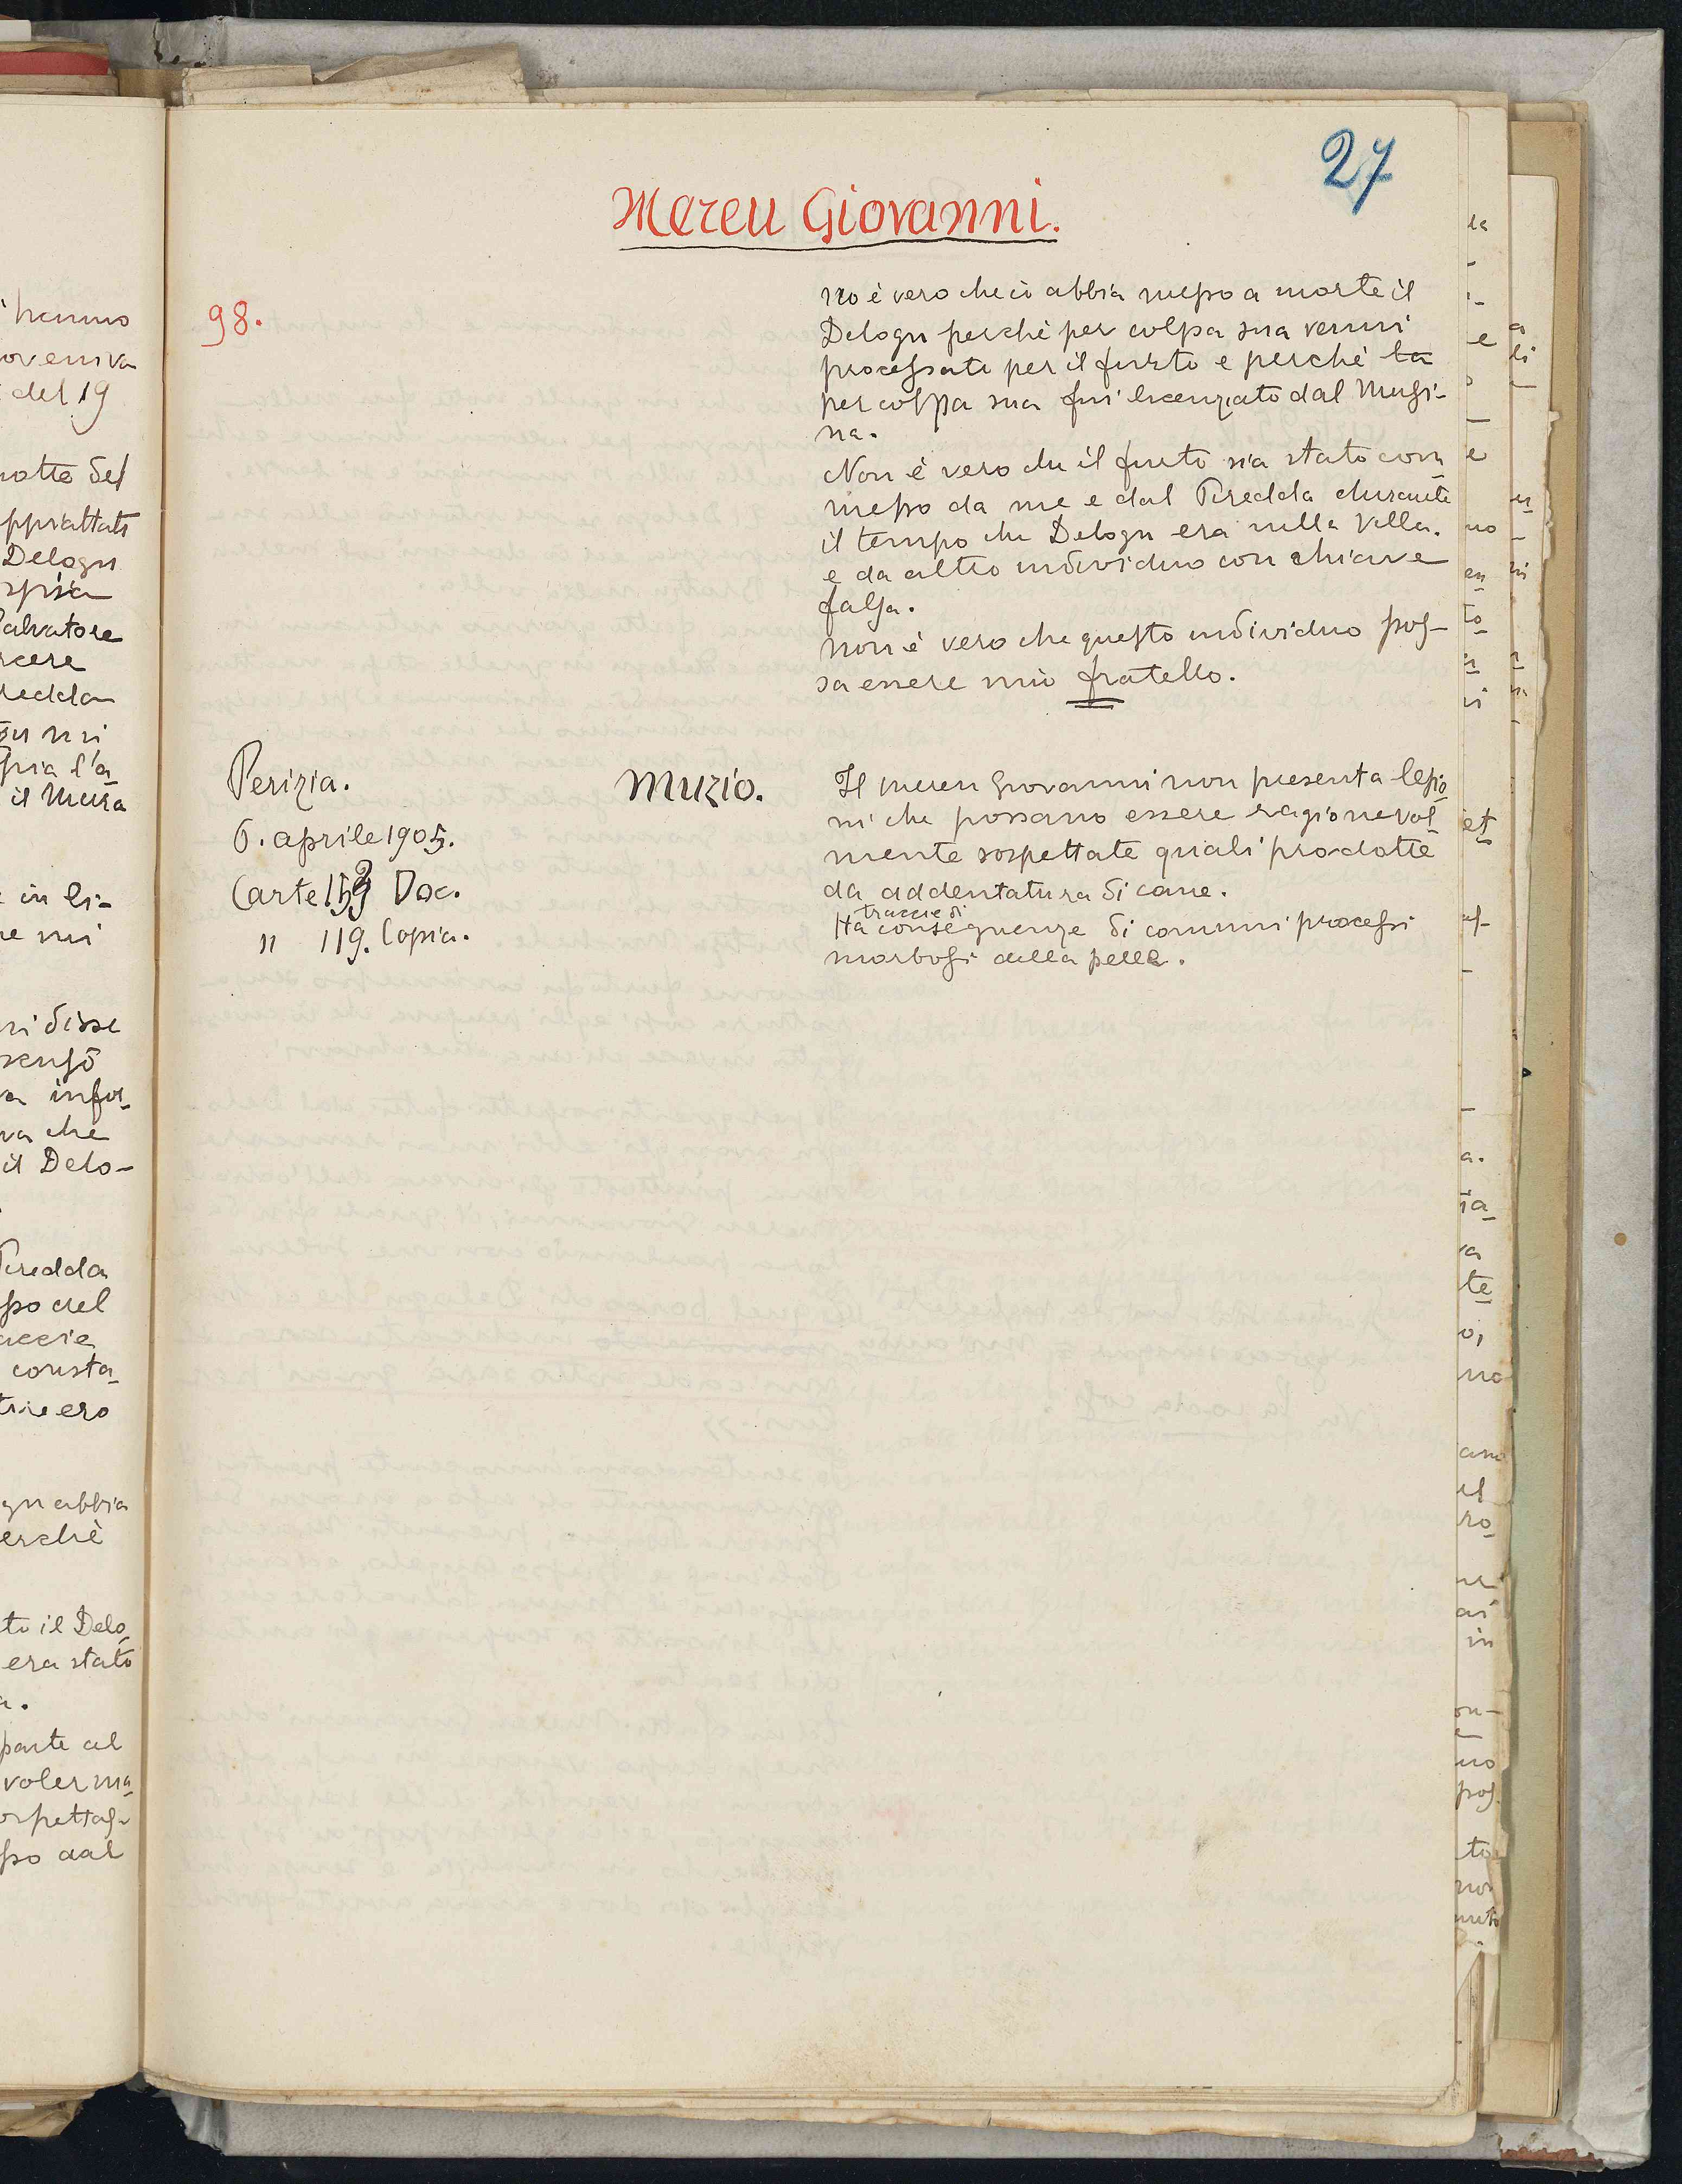 27
Mereu Giovanni.
98.
no è vero che io abbia messo a morte il
Delogu perchè per colpa sua venni
processato per il furto e perchè la
per colpa sua fui licenziato dal Musi-
na.
Non è vero che il furto sia stato com-
messo da me e dal Piredda durante
il tempo che Delogu era nella Villa.
e da altro individuo con chiave
falsa.
non è vero che questo individuo pos-
sa essere mio fratello.
Perizia.
6. aprile 1905.
Carte Doc.
" 119. Copia.
Muzio.
Il mereu Giovanni non presenta lesio-
ni che possano essere ragionevol-
mente sospettate quali prodotte
da addentatura di cane.
traccie di
Ha conseguenze di comuni processi
morbosi della pelle.
hanno
oveniva
del 19
notte del
appiattati
Delogu
spia
Salvatore
rcere
redda
il Mura
in li-
disse
infor-
va che
il Delo-
Piredda
sso del
accie
consta-
gu abbia
erchè
to il Delo-
era stato
parte al
voler ma-
sso dal